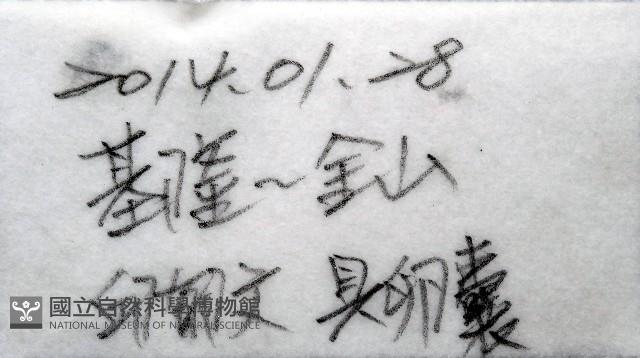 2014.01.28
基隆~金山
邱郁文 具卵囊
國立自然科學博物館
NATIONAL MUSEUM OF NATURAL SCIENCE